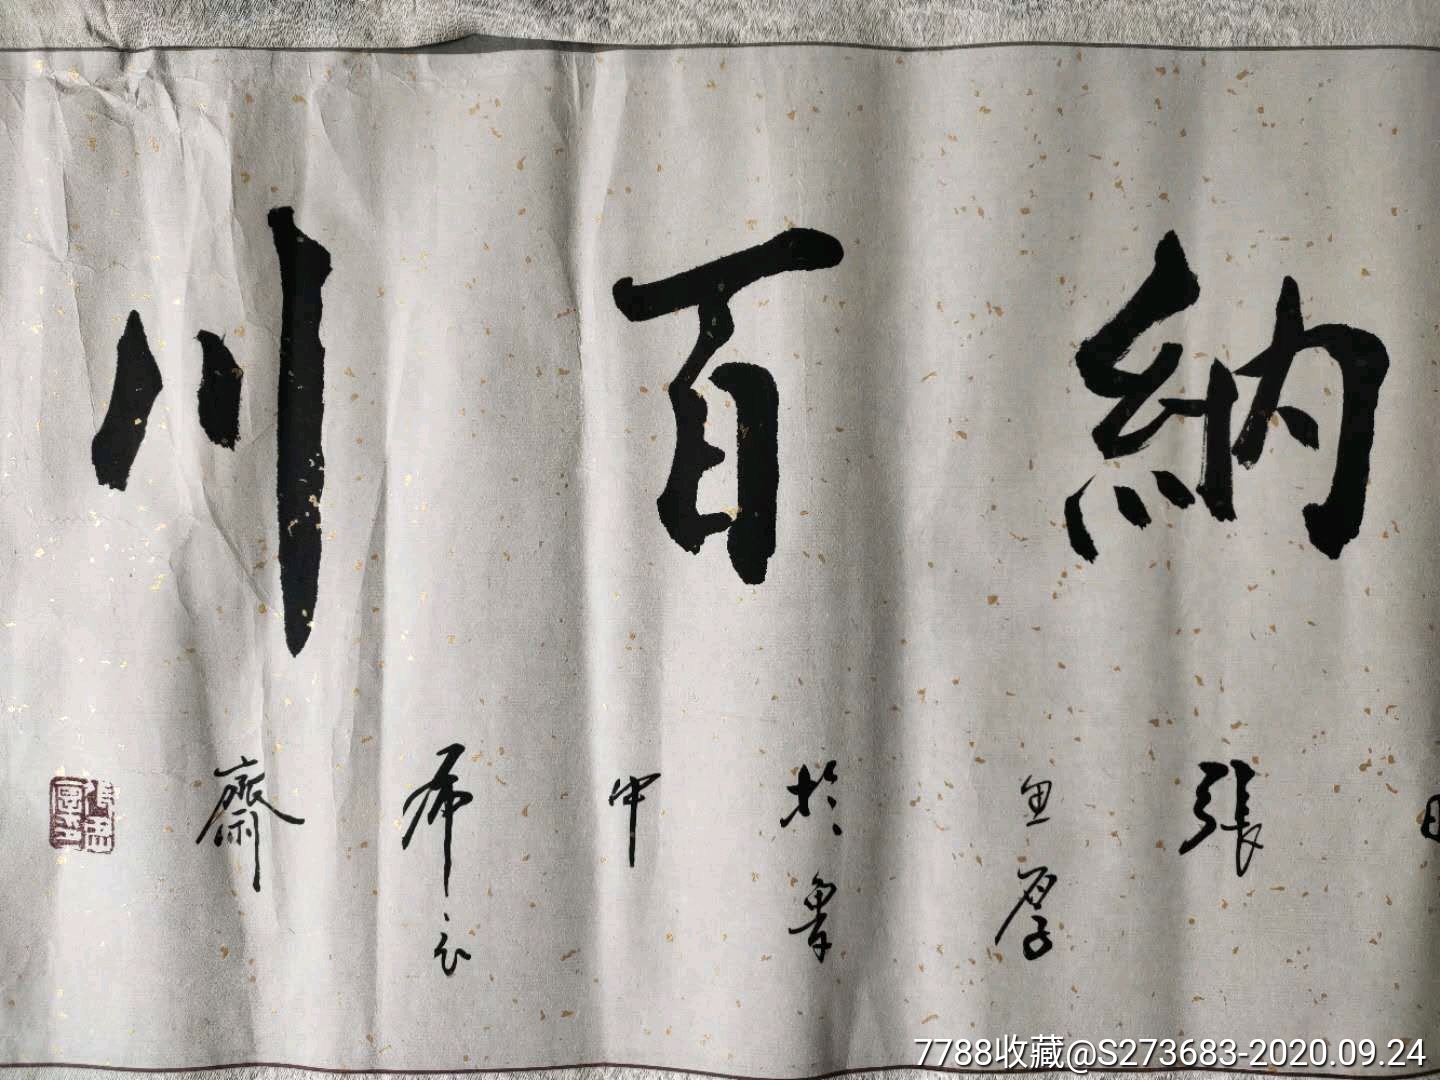 納百川
張
重厚
於魯
中
希之
齋
7788收藏@S273683-2020.09.24